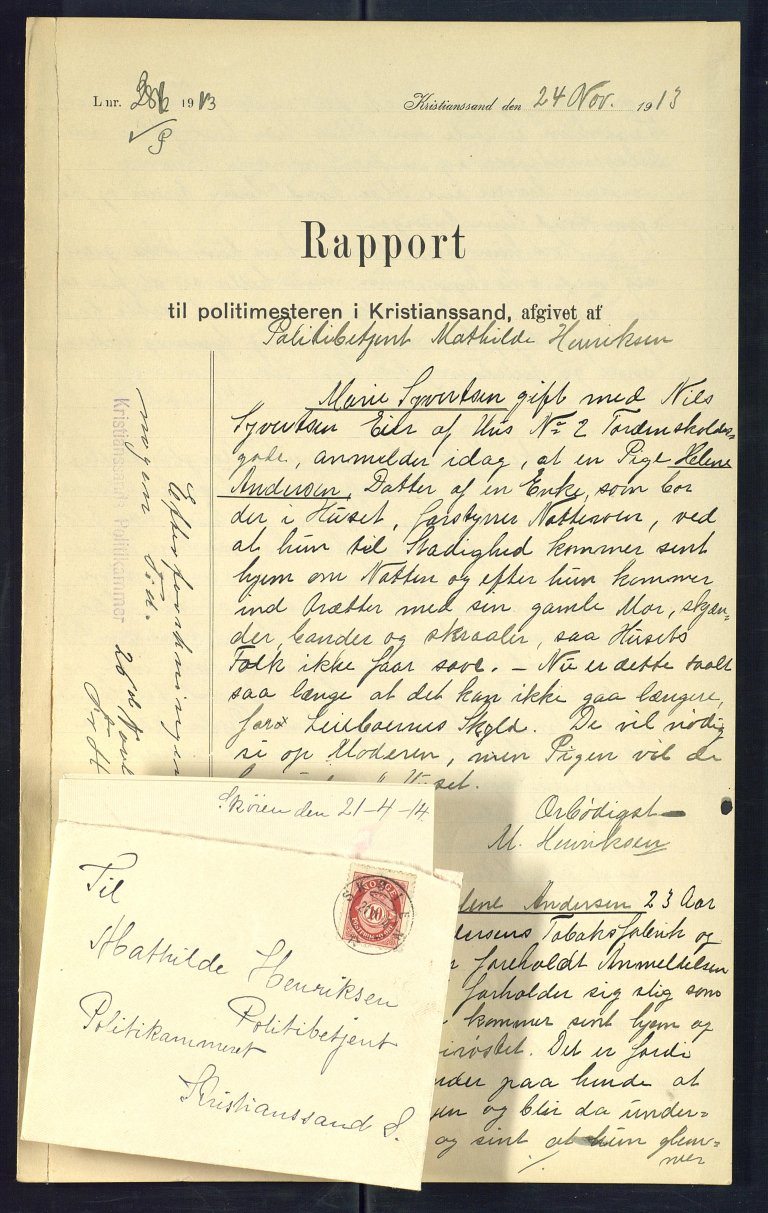 L nr. 386 1913
Kristianssand den 24 Nov. 1913
Rapport
til politimesteren i Kristianssand, afgivet af
Politibetjent Mathilde Henriksen
Marie Syvertsen gift med Nils
Syvertsen Eier af Hus No 2 Tordenskolds=
gade, anmelder idag, at en Pige Helene
Andersen, Datter af en Enke, som bor
der i Huset, forstyrrer Nattero​en, ved
at hun til Stadighed kommer sent
hjem om Natten og efter hun kommer
ind trætter med sin gamle Mor, skjæn-
der, bander og skraaler, saa Husets
Folk ikke faar sove. – Nu er dette taalt
saa længe at det kan ikke gaa længere,
for Leieboernes Skyld. De vil nødig
si op Moderen, men Pigen vil de
Huset.
Ærbødigst
M. Henriksen
lene Andersen 23 Aar
dersens Tobaksfabrik og
foreholdt Anmeldelsen
forholder sig slig som
kommer sent hjem og
røstet. Det er fordi
nder paa hende at
gen og blir da under=
og sint at hun glem=
mer
Efterforskningen
nogen Tid.
26de Novb
Kristianssands Politikammer
Skøien den 21-4-14.
Til
Mathilde Henriksen
Politibetjent
Politikammeret
Kristianssand S.
NORGE
10
SKØIEN